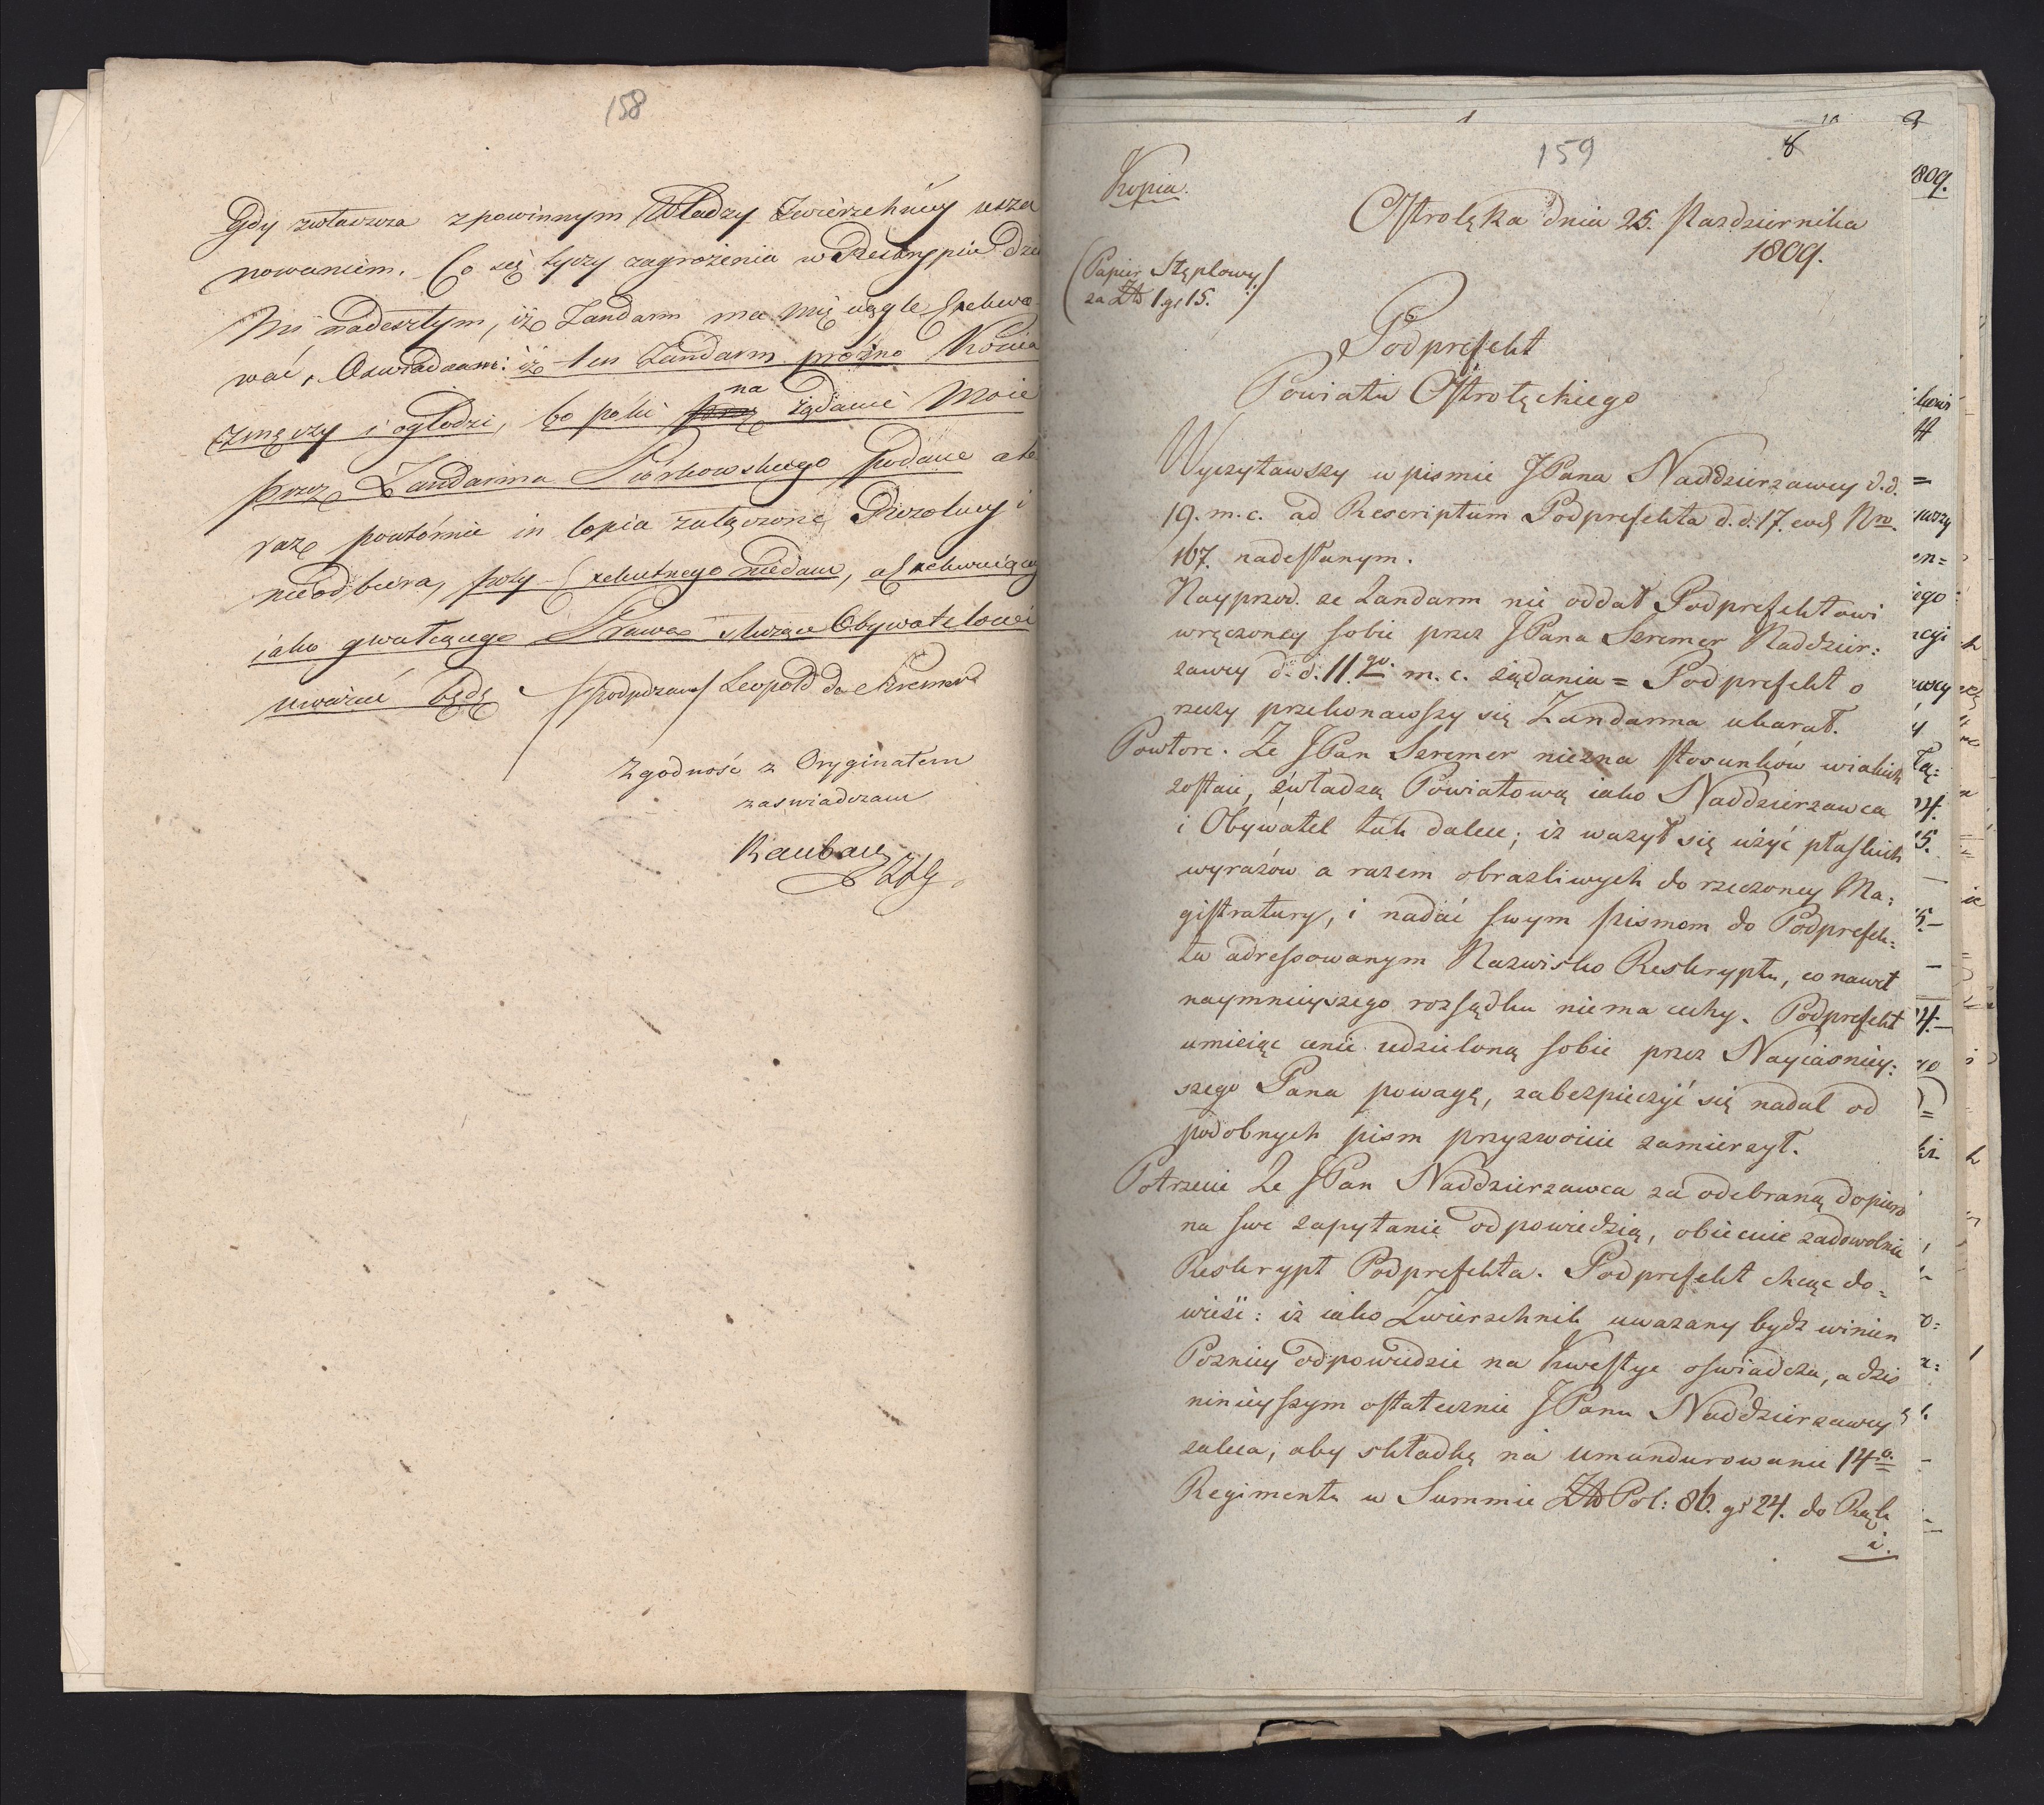 158
Gdy zwłaszcza z powinnym Władzy Zwierzchniey usza
nowaniem. Co się tyczy zagrożenia w Reskrypcie dziś
mi nadeszłym, iż Żandarm ma mię ciągle Exekwo
wać, Oswiadczam: iż ten Żandarm prózno Konia
zmęczy i ogłodzi, bo póki na żądanie Moie
przez Zandarma Piórkowskiego podane a te
raz powtórnie in copia załączone Rezolucyi
nieodbiera, póty Exekutnego niedam, a Exekwuiącego
iako gwałcącego Prawa służące Obywatelowi
uważać będę (podpisano) Leopold de Seremer
Zgodność z Oryginałem
zaswiadczam
Raubach
159
8
Kopia.
Ostrolęka dnia 25. Pazdziernika
1809.
(Papier Stęplowy
za Złt 1. gr 15.)
Podprefekt
Powiatu Ostrołęckiego
Wyczytawszy w pismie JPana Naddzierzawcy d.d.
19. m. c. ad Rescriptum Podprefekta d. d. 17. ejusd Nro
167. nadesłanym.
Nayprzod. ze Zandarm nie oddał Podprefektowi
wręczoney sobie przez JPana Seremer Naddzier:
zawcy d. d. 11.go m. c. ządania = Podprefekt o
rzeczy przekonawszy się Zandarma ukarał.
Powtore. Ze JPan Seremer niezna stosunków wiakich
zostaie, z władzą Powiatową iako Naddzierzawca
i Obywatel tak dalece; iz wazył się użyć płaskich
wyrazów a razem obrazliwych do rzeczoney Ma:
gistratury, i nadać swym pismom do Podprefek:
ta adressowanym Nazwisko Reskryptu, co nawet
naymnieyszego rozsądku niema cechy. Podprefekt
umieiąc cenić udzieloną sobie przez Nayiasniey:
szego Pana powagę, zabezpieczyć się nadal od
podobnych pism przyzwoicie zamierzył.
Potrzecie Ze JPan Naddzierzawca za odebraną dopiero
na swe zapytanie odpowiedzią, obiecuie zadowolnić
Reskrypt Podprefekta. Podprefekt chcąc do=
wieść: iz iako Zwierzchnik uwazany bydz winien
Pozniey odpowiedzie na Kwestye oswiadcza, a dzis
ninieyszym ostatecznie JPanu Naddzierzawcy
zaleca, aby składkę na umundurowanie 14o.
Regimentu w Summie Złt Pol: 86. gr 24. do Rąk